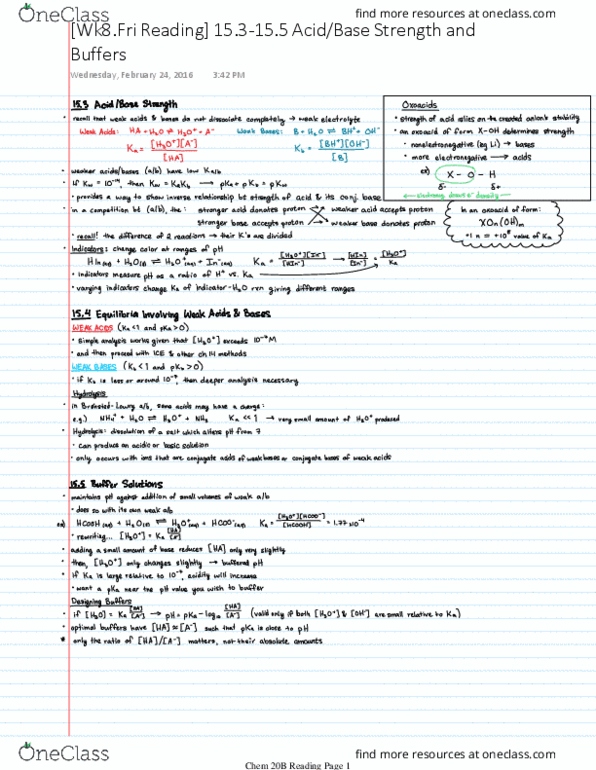 OneClass
find more resources at oneclass.com
[Wk8.Fri Reading] 15.3-15.5 Acid/Base Strength and
Buffers
Wednesday, February 24, 2016 3:42 PM
15.3 Acid/Base Strength
• recall that weak acids & bases do not dissociate completely → weak electrolyte
Weak Acids: HA + H₂O ⇌ H₃O⁺ + A⁻ Weak Bases: B + H₂O ⇌ BH⁺ + OH⁻
Kₐ = [H₃O⁺][A⁻] / [HA] K_b = [BH⁺][OH⁻] / [B]
• weaker acids/bases (a/b) have low K a/b
• If K_w = 10⁻¹⁴, then K_w = KₐK_b → pKₐ + pK_b = pK_w
• provides a way to show inverse relationship bt strength of acid & its conj. base
• in a competition bt (a/b), the: stronger acid donates proton weaker acid accepts proton
stronger base accepts proton weaker base donates proton
• recall! the difference of 2 reactions → their K's are divided
• Indicators: change color at ranges of pH
HIn(aq) + H₂O(l) ⇌ H₃O⁺(aq) + In⁻(aq) Kₐ = [H₃O⁺][In⁻] / [HIn] → [HIn] / [In⁻] = [H₃O⁺] / Kₐ
• indicators measure pH as a ratio of H⁺ vs. Kₐ
• varying indicators change Kₐ of indicator-H₂O rxn giving different ranges
Oxoacids
• strength of acid relies on the created anion's stability
• an oxoacid of form X-OH determines strength
• nonelectronegative (eg Li) → bases
• more electronegative → acids
ex) X - O - H
δ- δ+
electrons draw e⁻ density
In an oxoacid of form:
XOn(OH)m
+1 n = +10⁵ value of Kₐ
15.4 Equilibria Involving Weak Acids & Bases
WEAK ACIDS (Kₐ<1 and pKₐ>0)
• simple analysis works given that [H₃O⁺] exceeds 10⁻⁷M
• and then proceed with ICE & other ch 14 methods
WEAK BASES (K_b<1 and pK_b>0)
• if K_b is less or around 10⁻⁷, then deeper analysis necessary
Hydrolysis
• in Brønsted-Lowry a/b, some acids may have a charge:
e.g.) NH₄⁺ + H₂O ⇌ H₃O⁺ + NH₃ Kₐ << 1 → very small amount of H₃O⁺ produced
• Hydrolysis: dissolution of a salt which alters pH from 7
• can produce an acidic or basic solution
• only occurs with ions that are conjugate acids of weak bases or conjugate bases of weak acids
15.5 Buffer Solutions
• maintains pH against addition of small volumes of weak a/b
• does so with its own weak a/b
ex) HCOOH(aq) + H₂O(l) ⇌ H₃O⁺(aq) + HCOO⁻(aq) Kₐ = [H₃O⁺][HCOO⁻] / [HCOOH] = 1.77×10⁻⁴
• rewriting... [H₃O⁺] = Kₐ [HA] / [A⁻]
• adding a small amount of base reduces [HA] only very slightly
• then, [H₃O⁺] only changes slightly → buffered pH
• If Kₐ is large relative to 10⁻⁷, acidity will increase
• want a pKₐ near the pH value you wish to buffer
Designing Buffers
• if [H₃O] = Kₐ [HA] / [A⁻] → pH = pKₐ - log₁₀ [HA] / [A⁻] (valid only if both [H₃O⁺] & [OH⁻] are small relative to Kₐ)
• optimal buffers have [HA] ≈ [A⁻] such that pKₐ is close to pH
* only the ratio of [HA]/[A⁻] matters, not their absolute amounts
OneClass
find more resources at oneclass.com
Chem 20B Reading Page 1